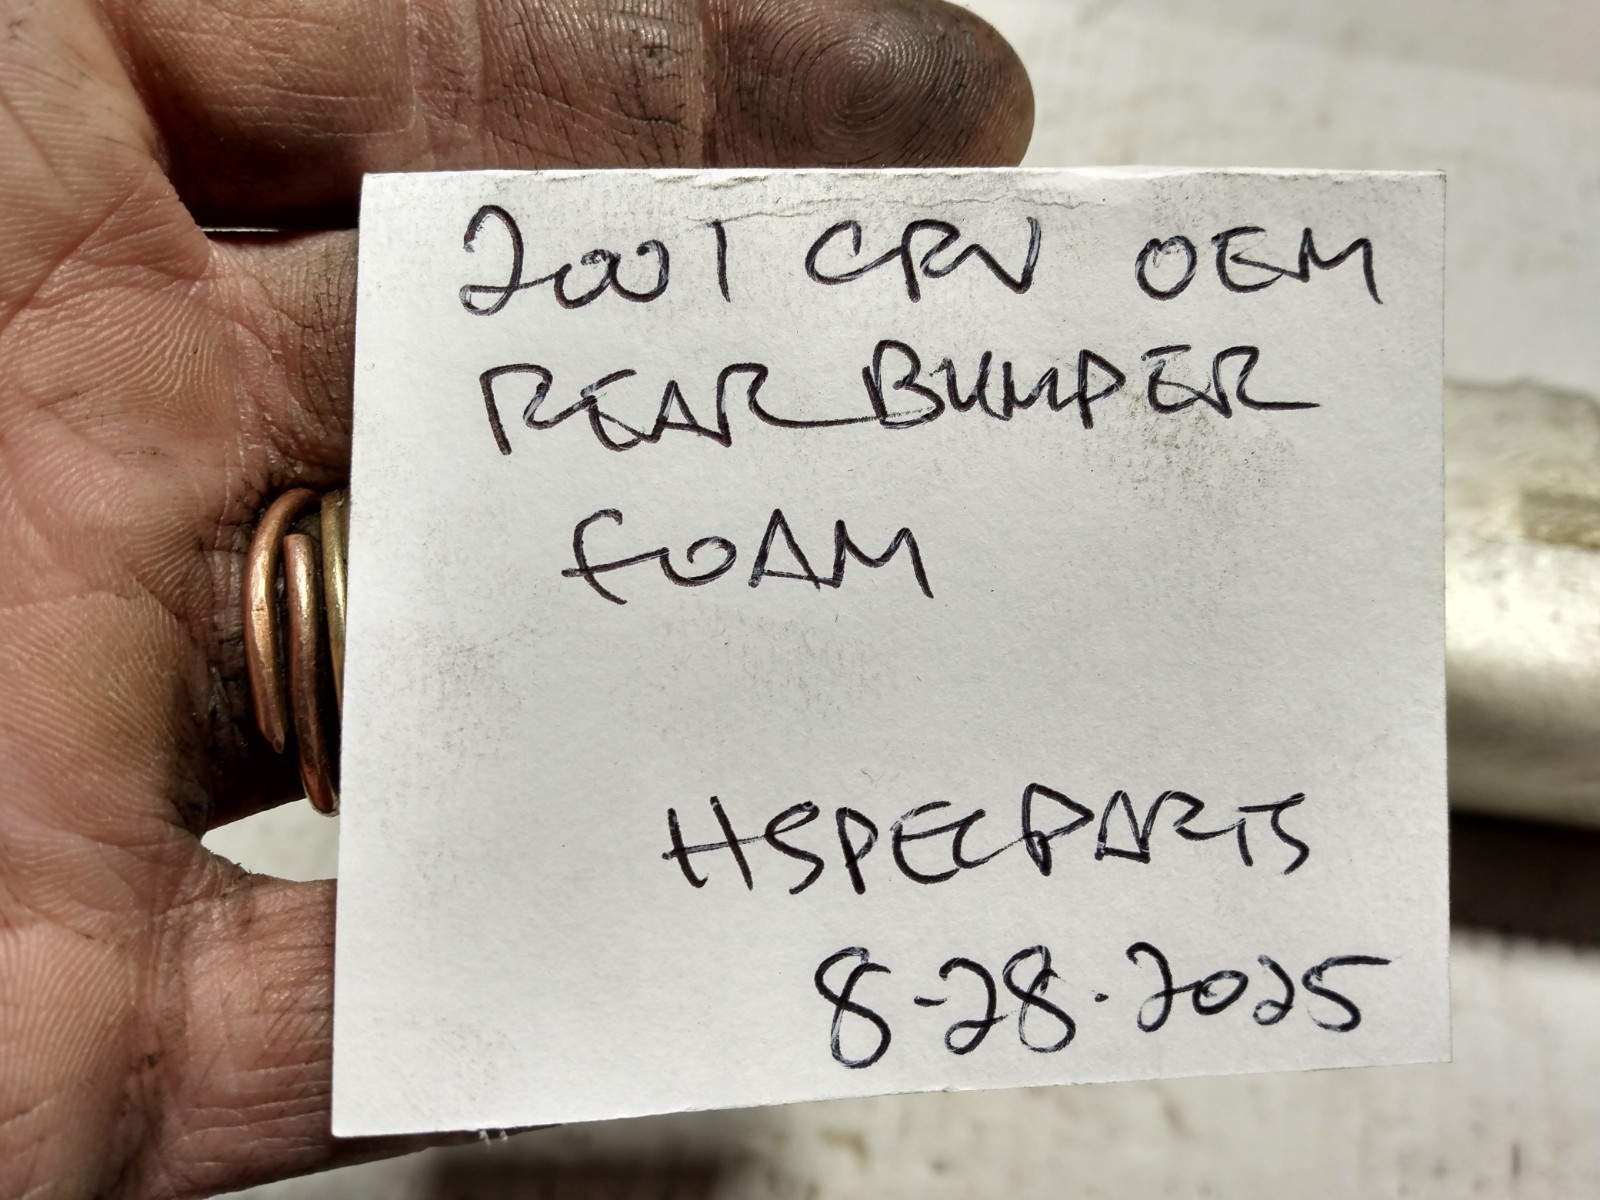 2001 CRV OEM
REAR BUMPER
FOAM
HSPECPARTS
8-28-2025